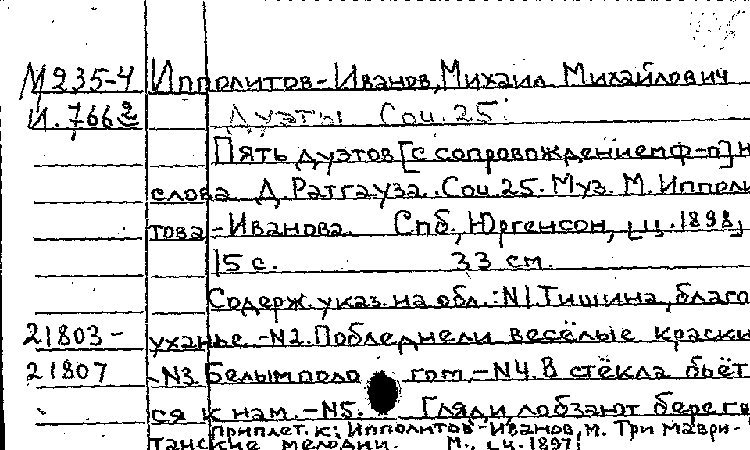 М235-4 Ипполитов-Иванов, Михаил Михайлович
И.766 Дуэты Соч. 25.
Пять дуэтов [с сопровождением ф-п] н
слова Д. Ратгауза. Соч 25. Муз. М. Иппольи
това-Иванова. Спб., Юргенсон, [ц. 1898]
15 с. 33 см.
Содерж. указ. на обл.: N1. Тишина, благо
21803- уханье. -N2. Побледнели весёлые краски
21807 -N3. Белым поло гом. -N4. В стёкла бьёт
ся к нам. -N5. Гляди, лобзают берега
приплет. к: Ипполитов-Иванов, М. Три маври-
танские мелодии. М., [ц. 1897]